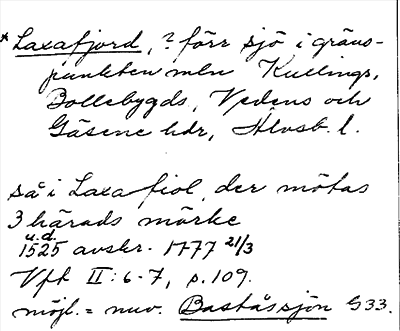 *Laxafjord, ? förr sjö i gräns-
punkten mln Kullings,
Bollebygds, Vedens och
Gäsene hdr, Älvsb. l.
så i Laxa fiol, der mötas
3 härads märke
u.d.
1525 avskr. 1777 21/3
Vft II: 6-7, p. 109.
möjl. = nuv. Baståssjön G33.